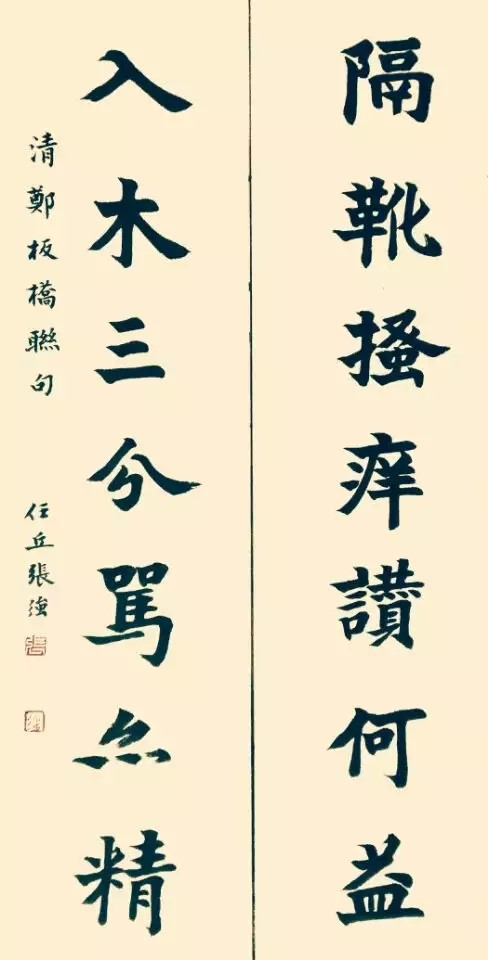 隔靴搔痒讚何益
入木三分罵亦精
清鄭板橋聯句 任丘張強